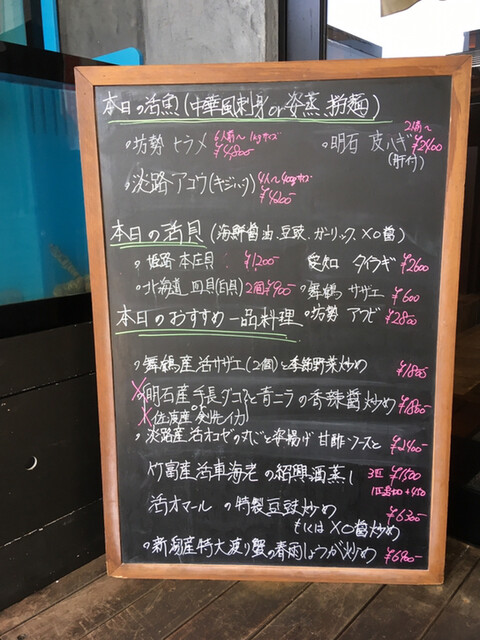 本日の活魚(中華風刺身or姿蒸、揚麺)
・坊勢 ヒラメ 6人前〜 1kgサイズ ¥4800-
・明石 皮ハギ(肝付) 2人前〜 ¥2400
・淡路アコウ(キジハタ) 4人〜 400gサイズ ¥4200-
本日の活貝(海鮮醤油、豆豉、ガーリック、XO醤)
・姫路 本庄貝 ¥1,200-
愛知 タイラギ ¥2600
・北海道 四貝(白貝) 2個¥900-
・舞鶴 サザエ ¥600
・坊勢 アワビ ¥2800
本日のおすすめ一品料理
・舞鶴産活サザエ(2個)と季節野菜炒め ¥1800-
明石産手長ダコと青ニラの香辣醤炒め ¥1800-
佐渡産剣先イカ
・淡路産活オコゼの丸ごと姿揚げ 甘酢ソースと ¥2400-
竹富産活車海老の紹興酒蒸し 3匹 ¥1500
1匹追加+450
活オマールの特製豆豉炒め ¥6300-
もしくはXO醤炒め
・新潟産特大渡り蟹の春雨しょうが炒め ¥6900-